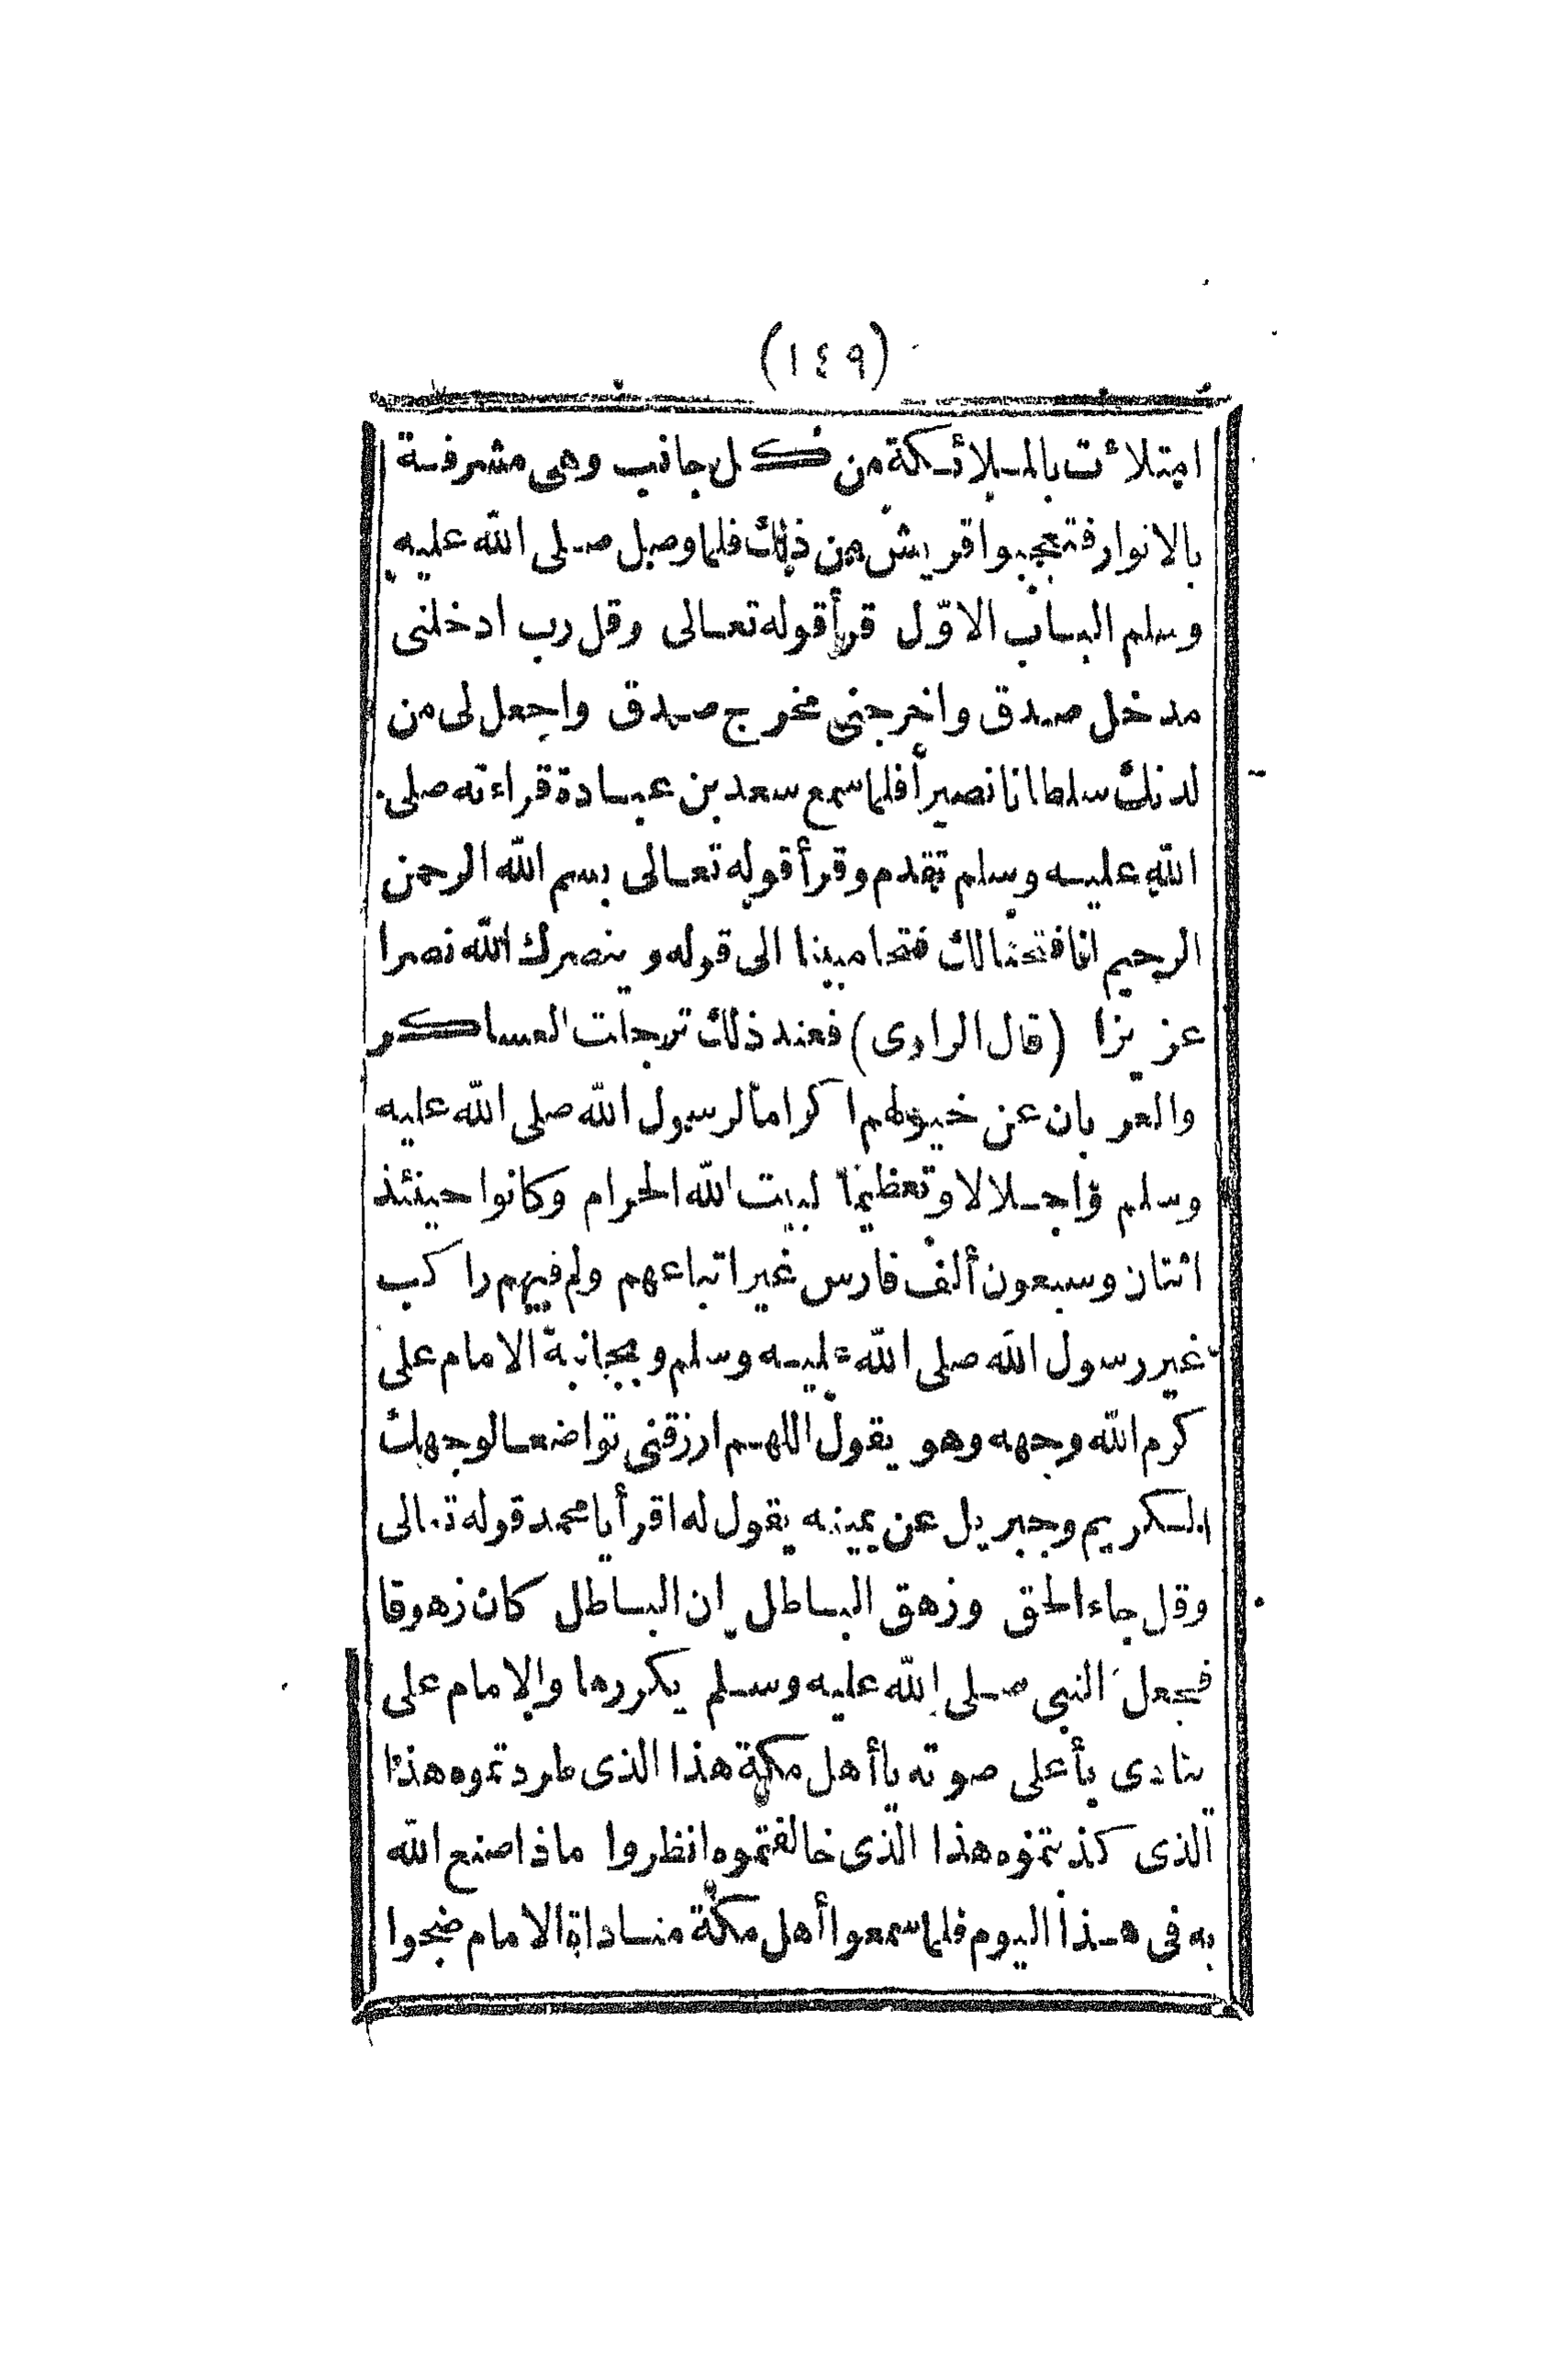 (١٤٩)
امتلائت بالملائكة من كل جانب وهى مشرفة
بالانوار فتعجبوا قريش من ذلك فلما وصل صلى الله عليه
وسلم الباب الاوّل قرأ قوله تعالى وقل رب ادخلنى
مدخل صدق واخرجنى مخرج صدق واجعل لى من
لدنك سلطانا نصيرا فلما سمع سعد بن عبادة قراءته صلى
الله عليه وسلم تقدم وقرأ قوله تعالى بسم الله الرحمن
الرحيم انا فتحنا لك فتحا مبينا الى قوله و ينصرك الله نصرا
عزيزا (قال الراوى) فعند ذلك ترجلت العساكر
والعربان عن خيولهم اكراما لرسول الله صلى الله عليه
وسلم واجلالا وتعظيما لبيت الله الحرام وكانوا حينئذ
اثنتان وسبعون ألف فارس غير اتباعهم ولم فيهم راكب
غير رسول الله صلى الله عليه وسلم وبجانبه الامام على
كرم الله وجهه وهو يقول اللهم ارزقنى تواضعا لوجهك
الكريم وجبريل عن يمينه يقول له اقرأ يا محمد قوله تعالى
وقل جاء الحق وزهق الباطل ان الباطل كان زهوقا
فجعل النبى صلى الله عليه وسلم يكررها والامام على
ينادى بأعلى صوته يا أهل مكة هذا الذى طردتموه هذا
الذى كذبتموه هذا الذى خالفتموه انظروا ماذا صنع الله
به فى هذا اليوم فلما سمعوا أهل مكة مناداة الامام ضجوا